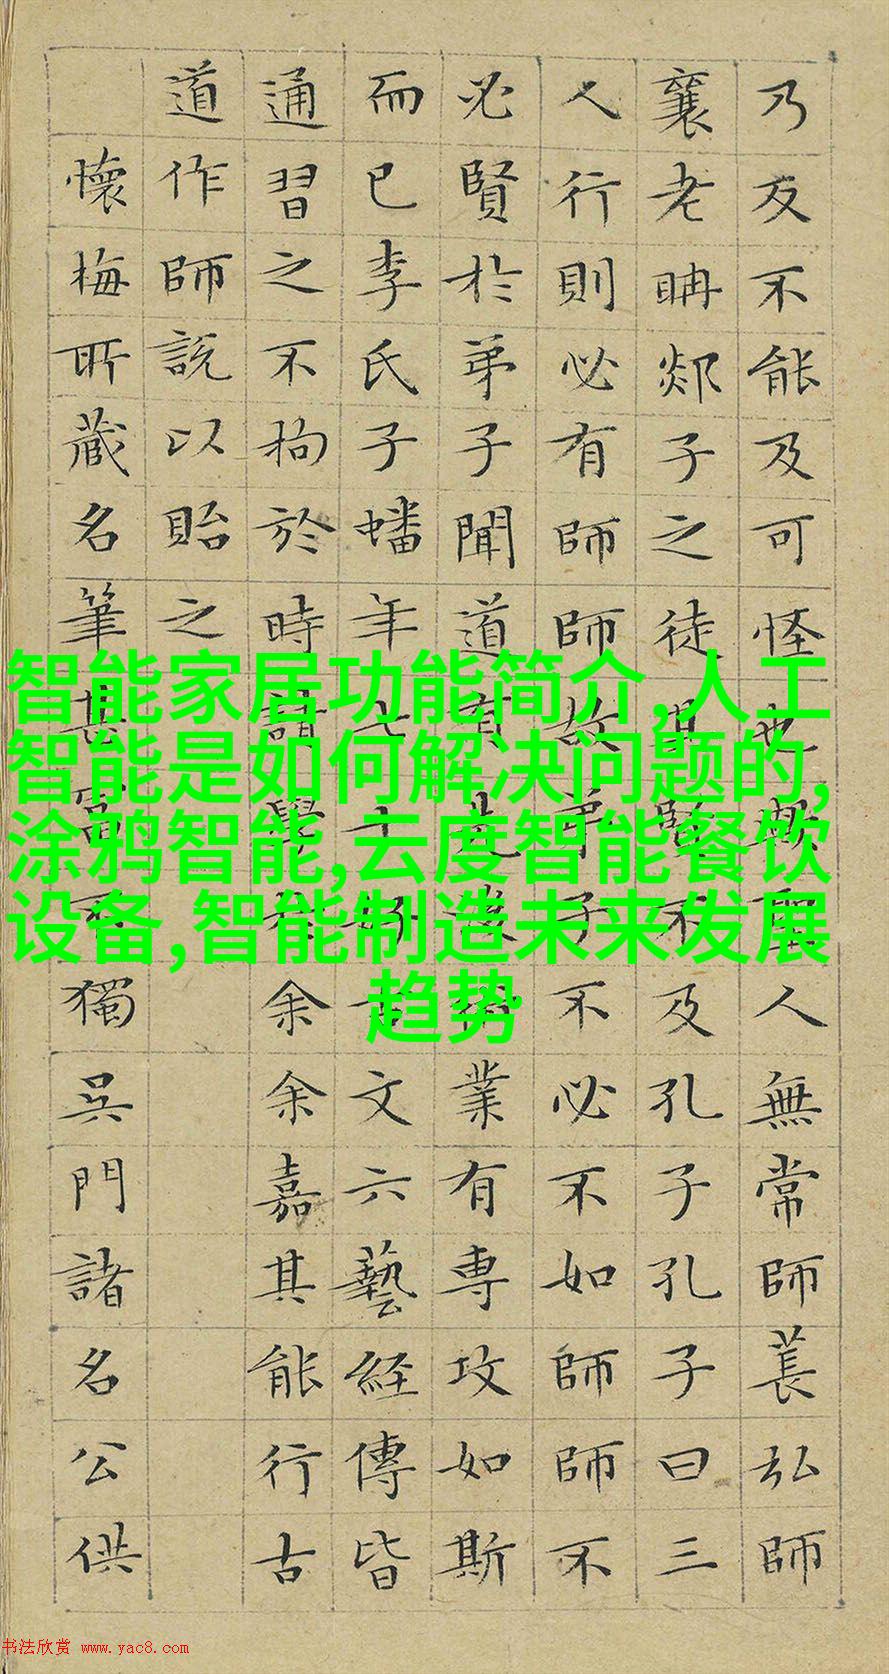 乃反不能及可怪也歟聖人無常師萇弘師
襄老聃郯子之徒其賢不及孔子孔子曰三
人行則必有師師故弟子不必不如師師不
必賢於弟子聞道有先後術業有專攻如斯
而已李氏子蟠年十七好古文六藝経傳皆
通習之不拘於時請學於余余嘉其能行古
道作師説以貽之
懐梅所蔵名筆甚富不獨吳門諸名公供
智能家居功能简介,人工
智能是如何解决问题的,
涂鸦智能,云度智能餐饮
设备,智能制造未来发展
趋势
书法欣赏 www.yac8.com